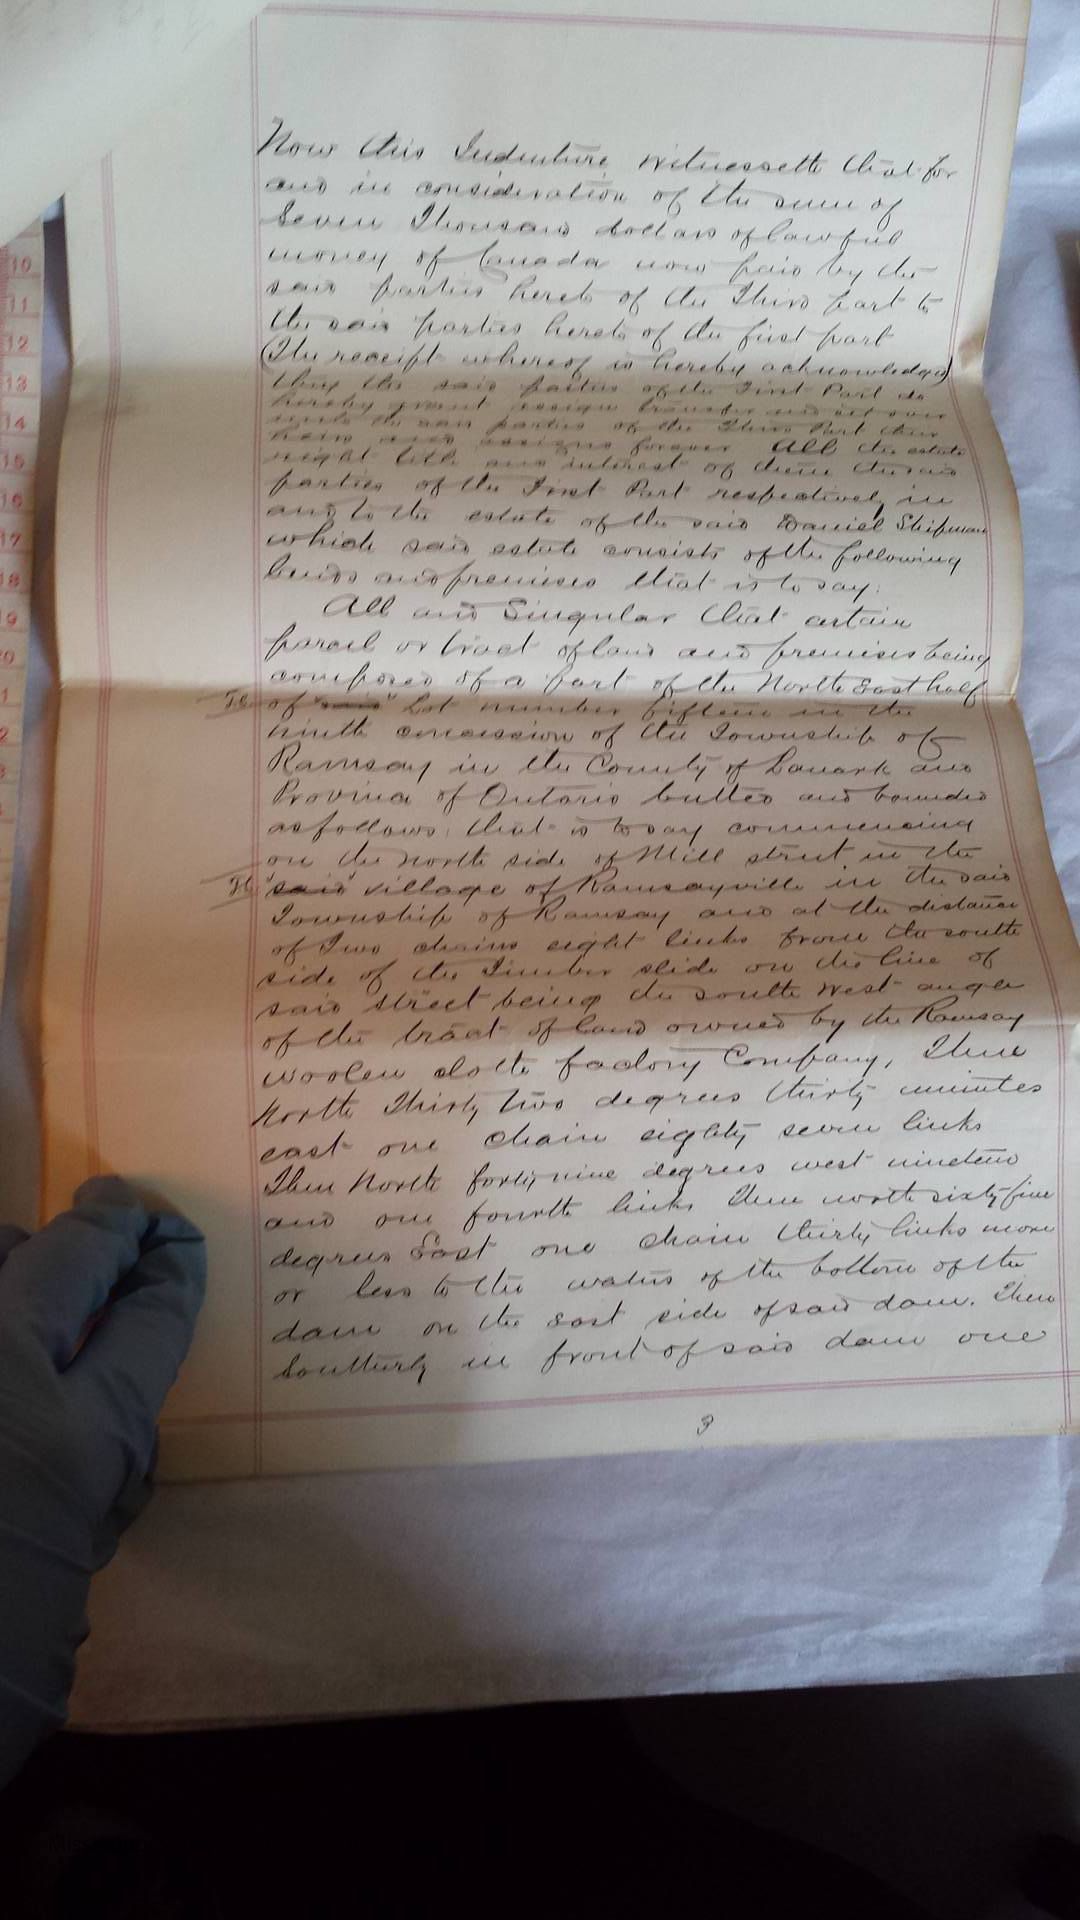 Now this Indenture witnesseth that for
and in consideration of the sum of
Seven Thousand dollars of lawful
money of Canada now paid by the
said parties hereto of the Third part to
the said parties hereto of the first part
(The receipt whereof is hereby acknowledged)
they the said parties of the First Part do
hereby grant assign transfer and set over
unto the said parties of the Third Part their
heirs and assigns forever All the estate
right title and interest of them the said
parties of the First Part respectively in
and to the estate of the said Daniel Shipman
which said estate consists of the following
lands and premises that is to say:
All and Singular that certain
parcel or tract of land and premises being
composed of a part of the North East half
of "said" Lot number fifteen in the
ninth concession of the Township of
Ramsay in the County of Lanark and
Province of Ontario butted and bounded
as follows: that is to say commencing
on the north side of Mill street in the
"said" village of Ramsayville in the said
Township of Ramsay and at the distance
of Two chains eight links from the south
side of the Timber slide on the line of
said street being the south west angle
of the tract of land owned by the Ramsay
Woolen cloth factory Company, Thence
North Thirty two degrees thirty minutes
east one chain eighty seven links
Then North forty nine degrees west nineteen
and one fourth links Thence north sixty five
degrees East one chain thirty links more
or less to the waters of the bottom of the
dam on the East side of said dam. Then
Southerly in front of said dam one
3
10
11
12
13
14
15
16
17
18